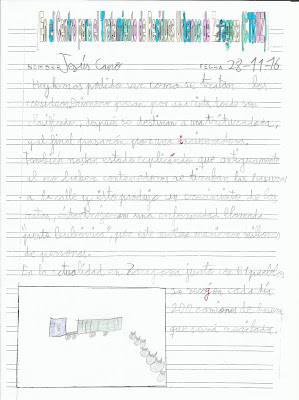 En el Centro para el Tratamiento de Residuos Urbanos de Zaragoza (CTRUZ)
NOMBRE Jesús Cano FECHA 28-11-16
Hoy hemos podido ver como se tratan los
residuos, primero pasan por una cinta donde son
clasificados, después se destinan a una trituradora,
y al final pasarán por una incineradora.
También nos han estado explicando que antiguamente
al no haber contenedores se tiraban las basuras
a la calle y esto produjo un crecimiento de las
ratas, estas trajeron una enfermedad llamada
"peste bubónica", por este motivo murieron millones
de personas.
En la actualidad en Zaragoza junto con 61 pueblos
se recogen cada día
200 camiones de basura
que será reciclada.